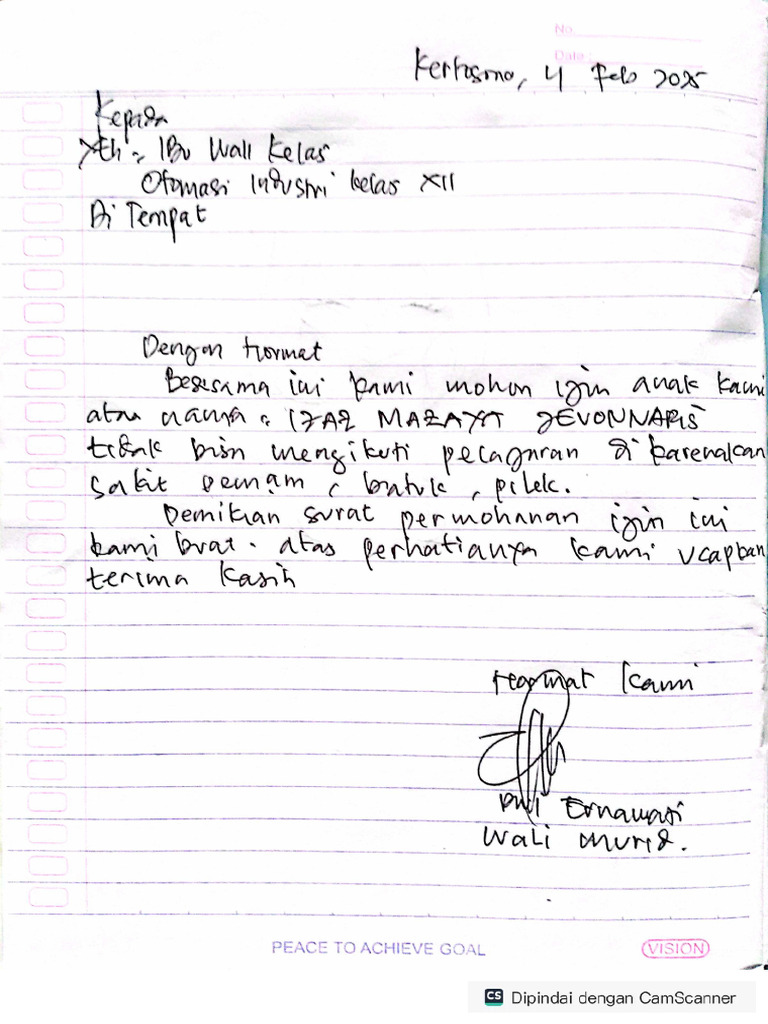 No.
Date :
Kertosono, 4 Feb 2025
Kepada
Yth : IBu Wali Kelas
Otomasi Industri kelas XII
Di Tempat
Dengan Hormat
Bersama ini kami mohon izin anak kami
atas nama : IZAQ MAZAYA JEVONNARIS
tidak bisa mengikuti pelajaran di karenakan
sakit Demam, batuk, pilek.
Demikian surat permohonan izin ini
kami buat. atas perhatianya kami ucapkan
terima kasih
Hormat kami
Ernawati
Wali murid.
PEACE TO ACHIEVE GOAL
VISION
CS Dipindai dengan CamScanner